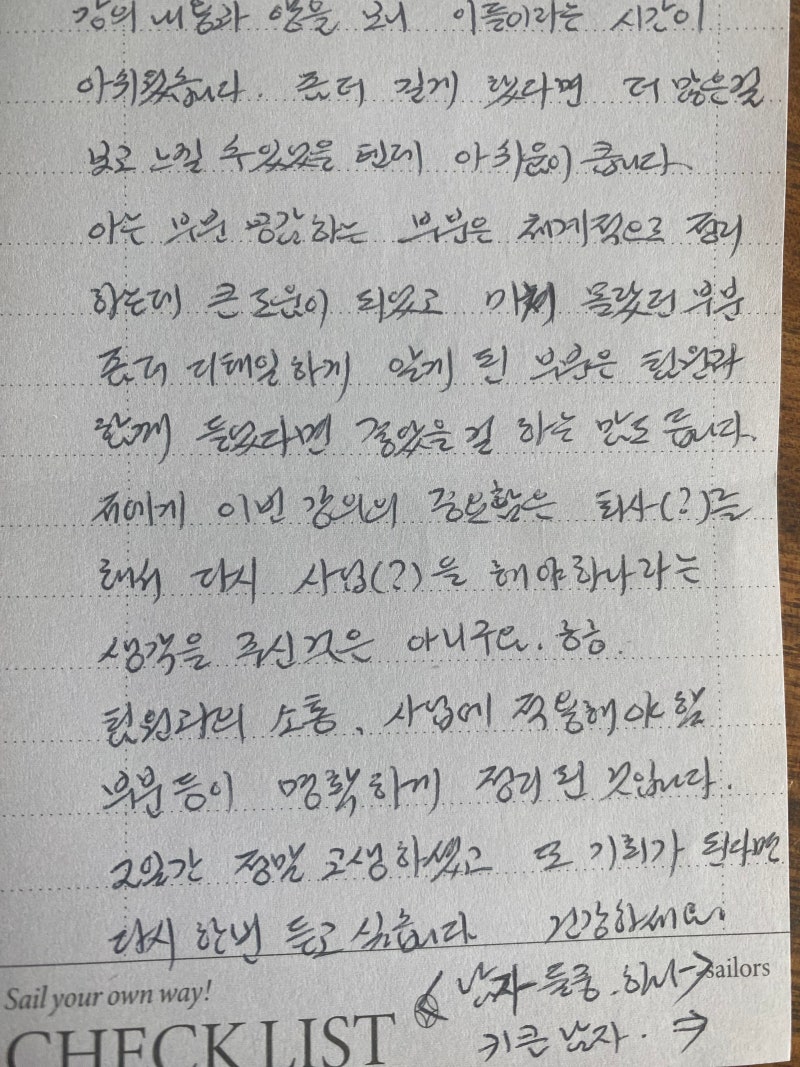 강의 내용과 양을 보니 이틀이라는 시간이
아쉬웠습니다. 좀더 길게 했다면 더 많은걸
보고 느낄 수 있었을 텐데 아쉬움이 큽니다
아는 부분 공감하는 부분은 체계적으로 정리
하는데 큰 도움이 되었고 미처 몰랐던 부분
좀더 디테일하게 알게 된 부분은 팀원과
함께 들었다면 좋았을 걸 하는 맘도 듭니다.
저에게 이번 강의의 중요함은 퇴사(?)를
해서 다시 사업(?)을 해야하나라는
생각을 주신것은 아니구요. ㅎㅎ.
팀원과의 소통, 사업에 적용해야 할
부분등이 명확하게 정리된 것입니다.
2일간 정말 고생하셨고 또 기회가 된다면
다시 한번 듣고 싶습니다 건강하세요.
남자들중.
키큰 남자. ⇒
Sail your own way! sailors
CHECK LIST